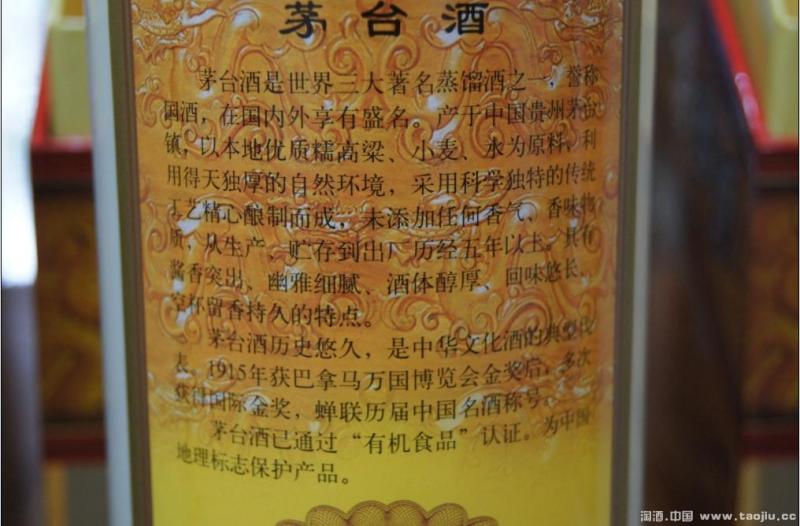 茅台酒
茅台酒是世界三大著名蒸馏酒之一,誉称
国酒,在国内外享有盛名。产于中国贵州茅台
镇,以本地优质糯高粱、小麦、水为原料,利
用得天独厚的自然环境,采用科学独特的传统
工艺精心酿制而成,未添加任何香气、香味物
质,从生产、贮存到出厂历经五年以上。具有
酱香突出、幽雅细腻、酒体醇厚、回味悠长、
空杯留香持久的特点。
茅台酒历史悠久,是中华文化酒的典型代
表、1915年获巴拿马万国博览会金奖后,多次
获得国际金奖,蝉联历届中国名酒称号。
茅台酒已通过“有机食品”认证。为中国
地理标志保护产品。
淘酒.中国 www.taojiu.cc